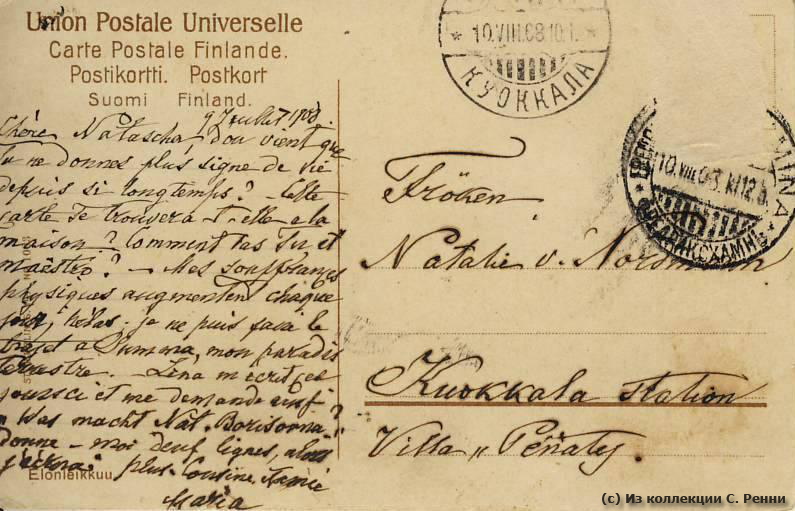 Union Postale Universelle
Carte Postale Finlande.
Postikortti. Postkort
Suomi Finland.
9 Juillet 1908.
Chère Natascha, d'où vient que
Tu ne donnes plus signe de vie
depuis si longtemps? Cette
carte Te trouvera-t-elle à la
maison? Comment vas Tu et
maëstro? — Mes souffrances
physiques augmentent chaque
jour, hélas. je ne puis faire le
trajet a mon paradis
terrestre. — Lina m'écrit ces
jours ci et me demande
"Was macht Nat. Borisovna?"
donne-moi deux lignes, alors
plus. Cousine Amie
Maria
Elonleikkuu
10.VIII.08.10.1.
КУОККАЛА
Fröken
Natalie v. Nordmann
Kuokkala station
Villa "Penaty.
(c) Из коллекции С. Ренни